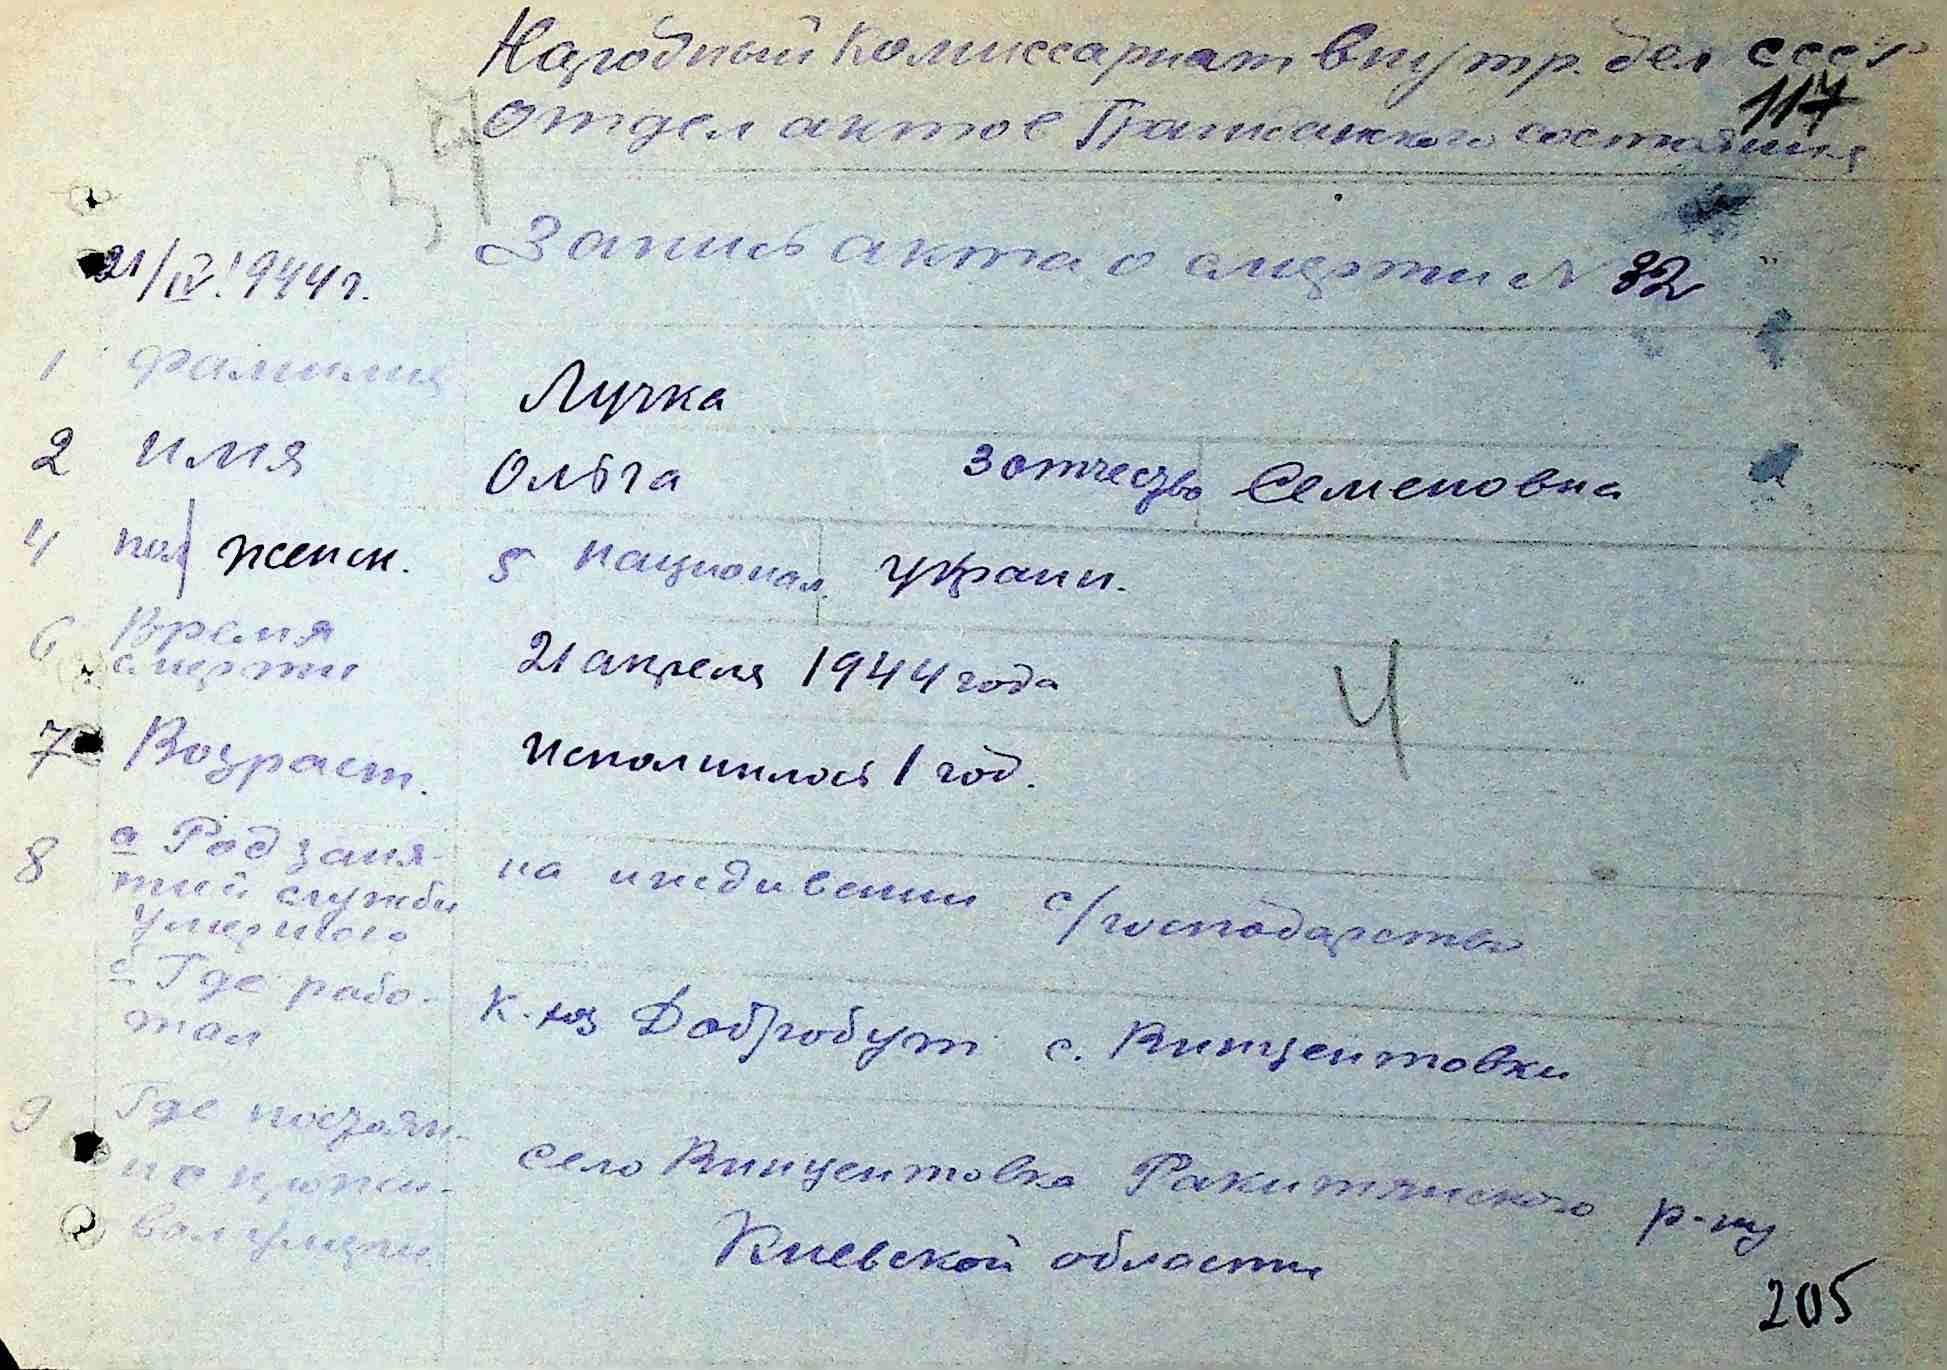 Народный Комиссариат Внутр. дел СССР
117
Отдел актов Гражданского состояния
37
Запись акта о смерти № 32
21/IV 1944 г.
1 Фамилия Лучка
2 имя Ольга 3 отчество Семеновна
4 пол женск. 5 национал. украин.
6 Время
смерти 21 апреля 1944 года
4
7 Возраст. исполнилось 1 год.
8 а Род заня-
тий службы на иждивении с/господарства
умершего
б Где рабо-
тал К-хоз Добробут с. Винцентовки
9 Где постоян-
но прожи- село Винцентовка Ракитянского р-ну
вал умерш. Киевской области
205